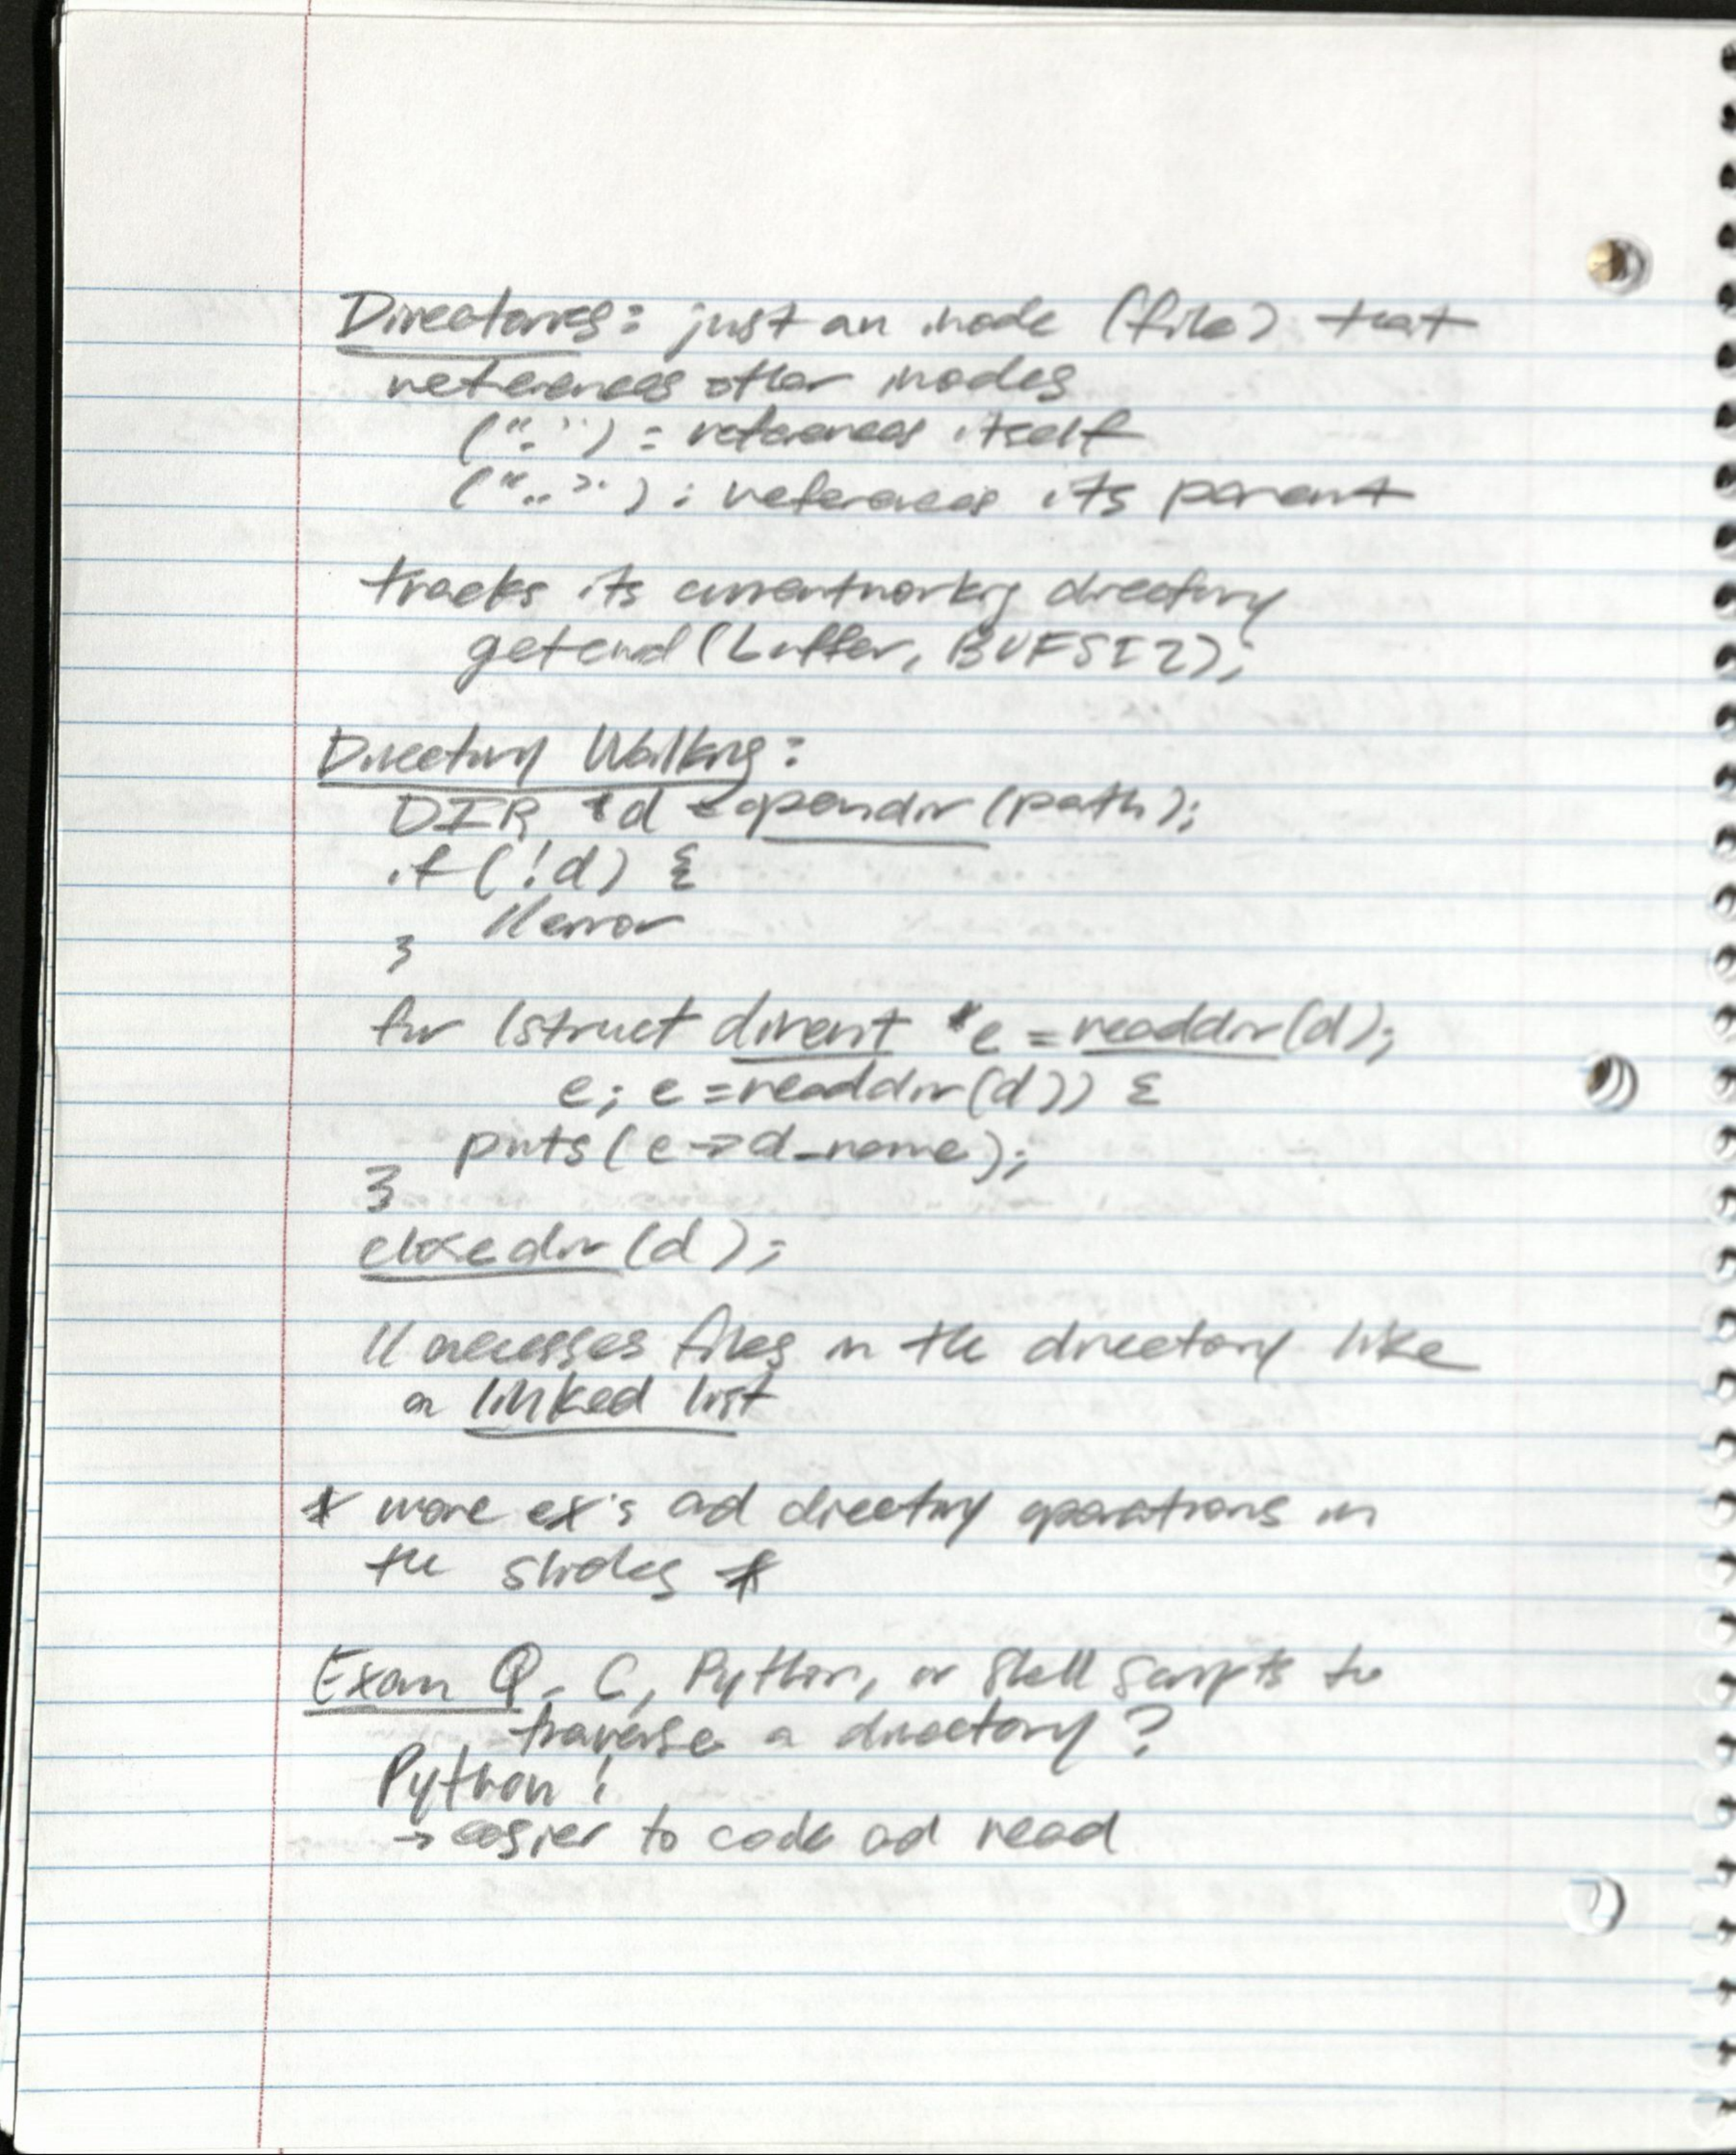 Directories: just an inode (file) that
references other inodes
("."): references itself
(".."): references its parent
tracks its current working directory
getcwd(buffer, BUFSIZ);
Directory Walking:
DIR *d = opendir(path);
if (!d) {
//error
}
for (struct dirent *e = readdir(d);
e; e = readdir(d)) {
puts(e->d_name);
}
closedir(d);
// accesses files in the directory like
a linked list
* more ex's and directory operations in
the slides *
Exam Q. C, Python, or Shell Scripts to
traverse a directory?
Python!
→ easier to code and read